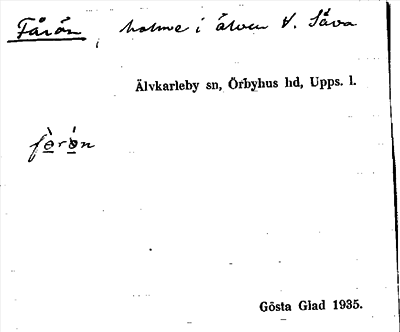 Fårön, holme i älven V. Såva
Älvkarleby sn, Örbyhus hd, Upps. l.
fὰrόn
Gösta Glad 1935.